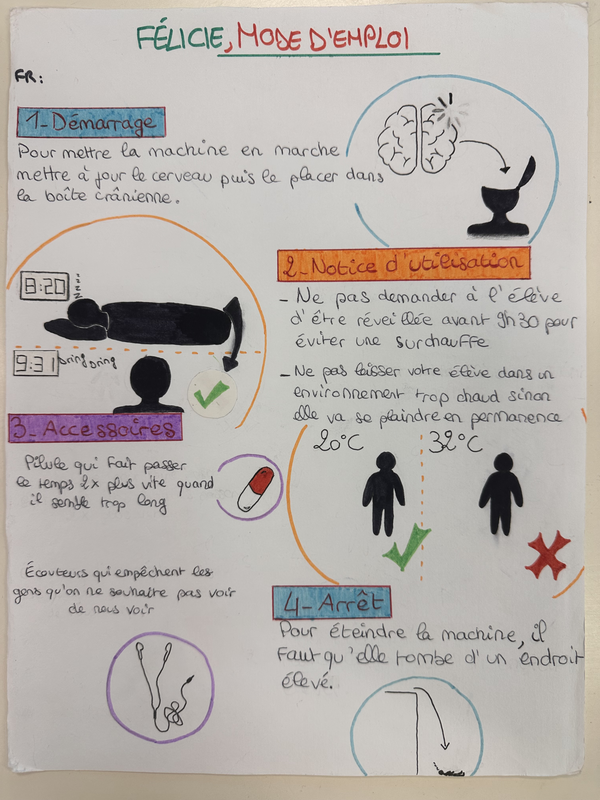 FÉLICIE, MODE D'EMPLOI
FR:
1-Démarrage
Pour mettre la machine en marche
mettre à jour le cerveau puis le placer dans
la boîte crânienne.
8:20
z
z
z
z
9:31 Dring Dring
2-Notice d'utilisation
- Ne pas demander à l'élève
d'être réveillée avant 9h30 pour
éviter une surchauffe
- Ne pas laisser votre élève dans un
environnement trop chaud sinon
elle va se plaindre en permanence
20°C
32°C
3-Accessoires
Pilule qui fait passer
le temps 2x plus vite quand
il semble trop long
Écouteurs qui empêchent les
gens qu'on ne souhaite pas voir
de nous voir
4-Arrêt
Pour éteindre la machine, il
faut qu'elle tombe d'un endroit
élevé.